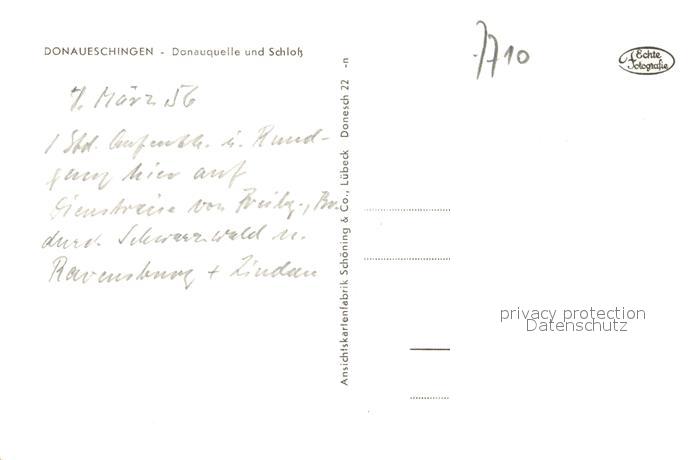 DONAUESCHINGEN - Donauquelle und Schloß
7710
Echte
Fotografie
7. März 56
1 Std. Aufenth. u. Rund-
gang hier auf
Dienstreise von Freibg., Br.
durch Schwarzwald n.
Ravensburg + Lindau
Ansichtskartenfabrik Schöning & Co., Lübeck Donesch 22 -n
privacy protection
Datenschutz